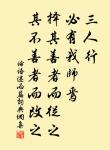 三人行
必有我師焉
擇其善者而從之
其不善者而改之
論語述而篇詞典網集